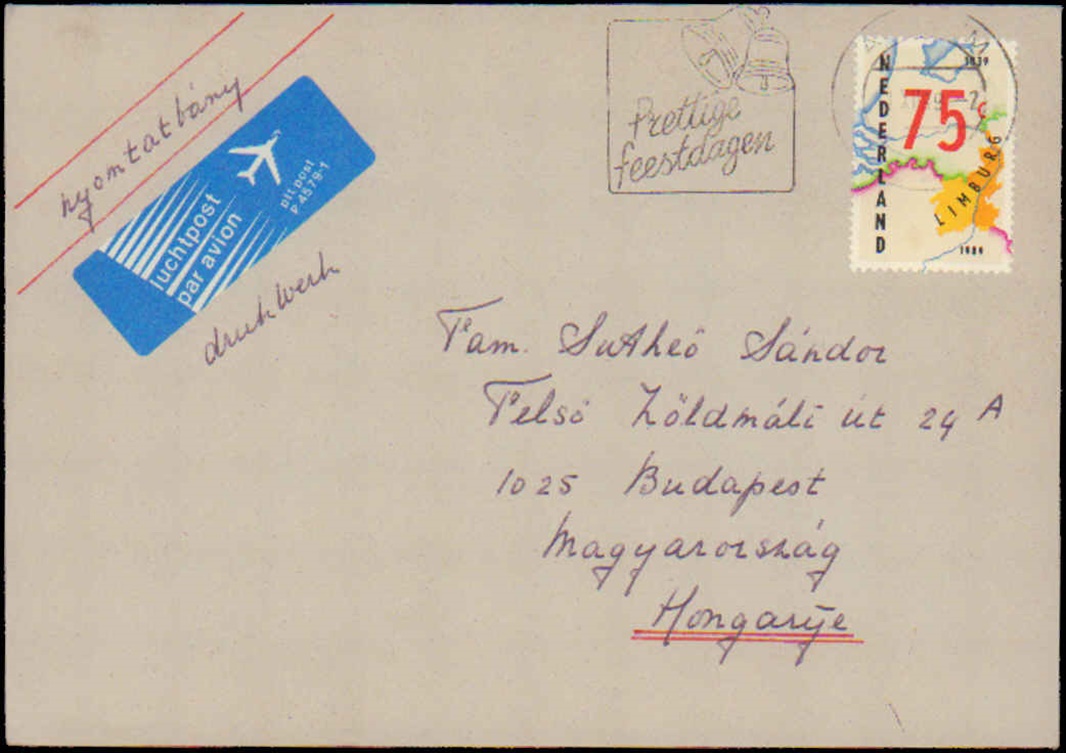 nyomtatbány
luchtpost
par avion
ptt post
P 4579-1
drukwerk
Prettige
feestdagen
NEDERLAND
1839
75c
LIMBURG
1989
Fam. Sándor
Felső Zöldmáli út 24 A
1025 Budapest
Magyarország
Hongarije